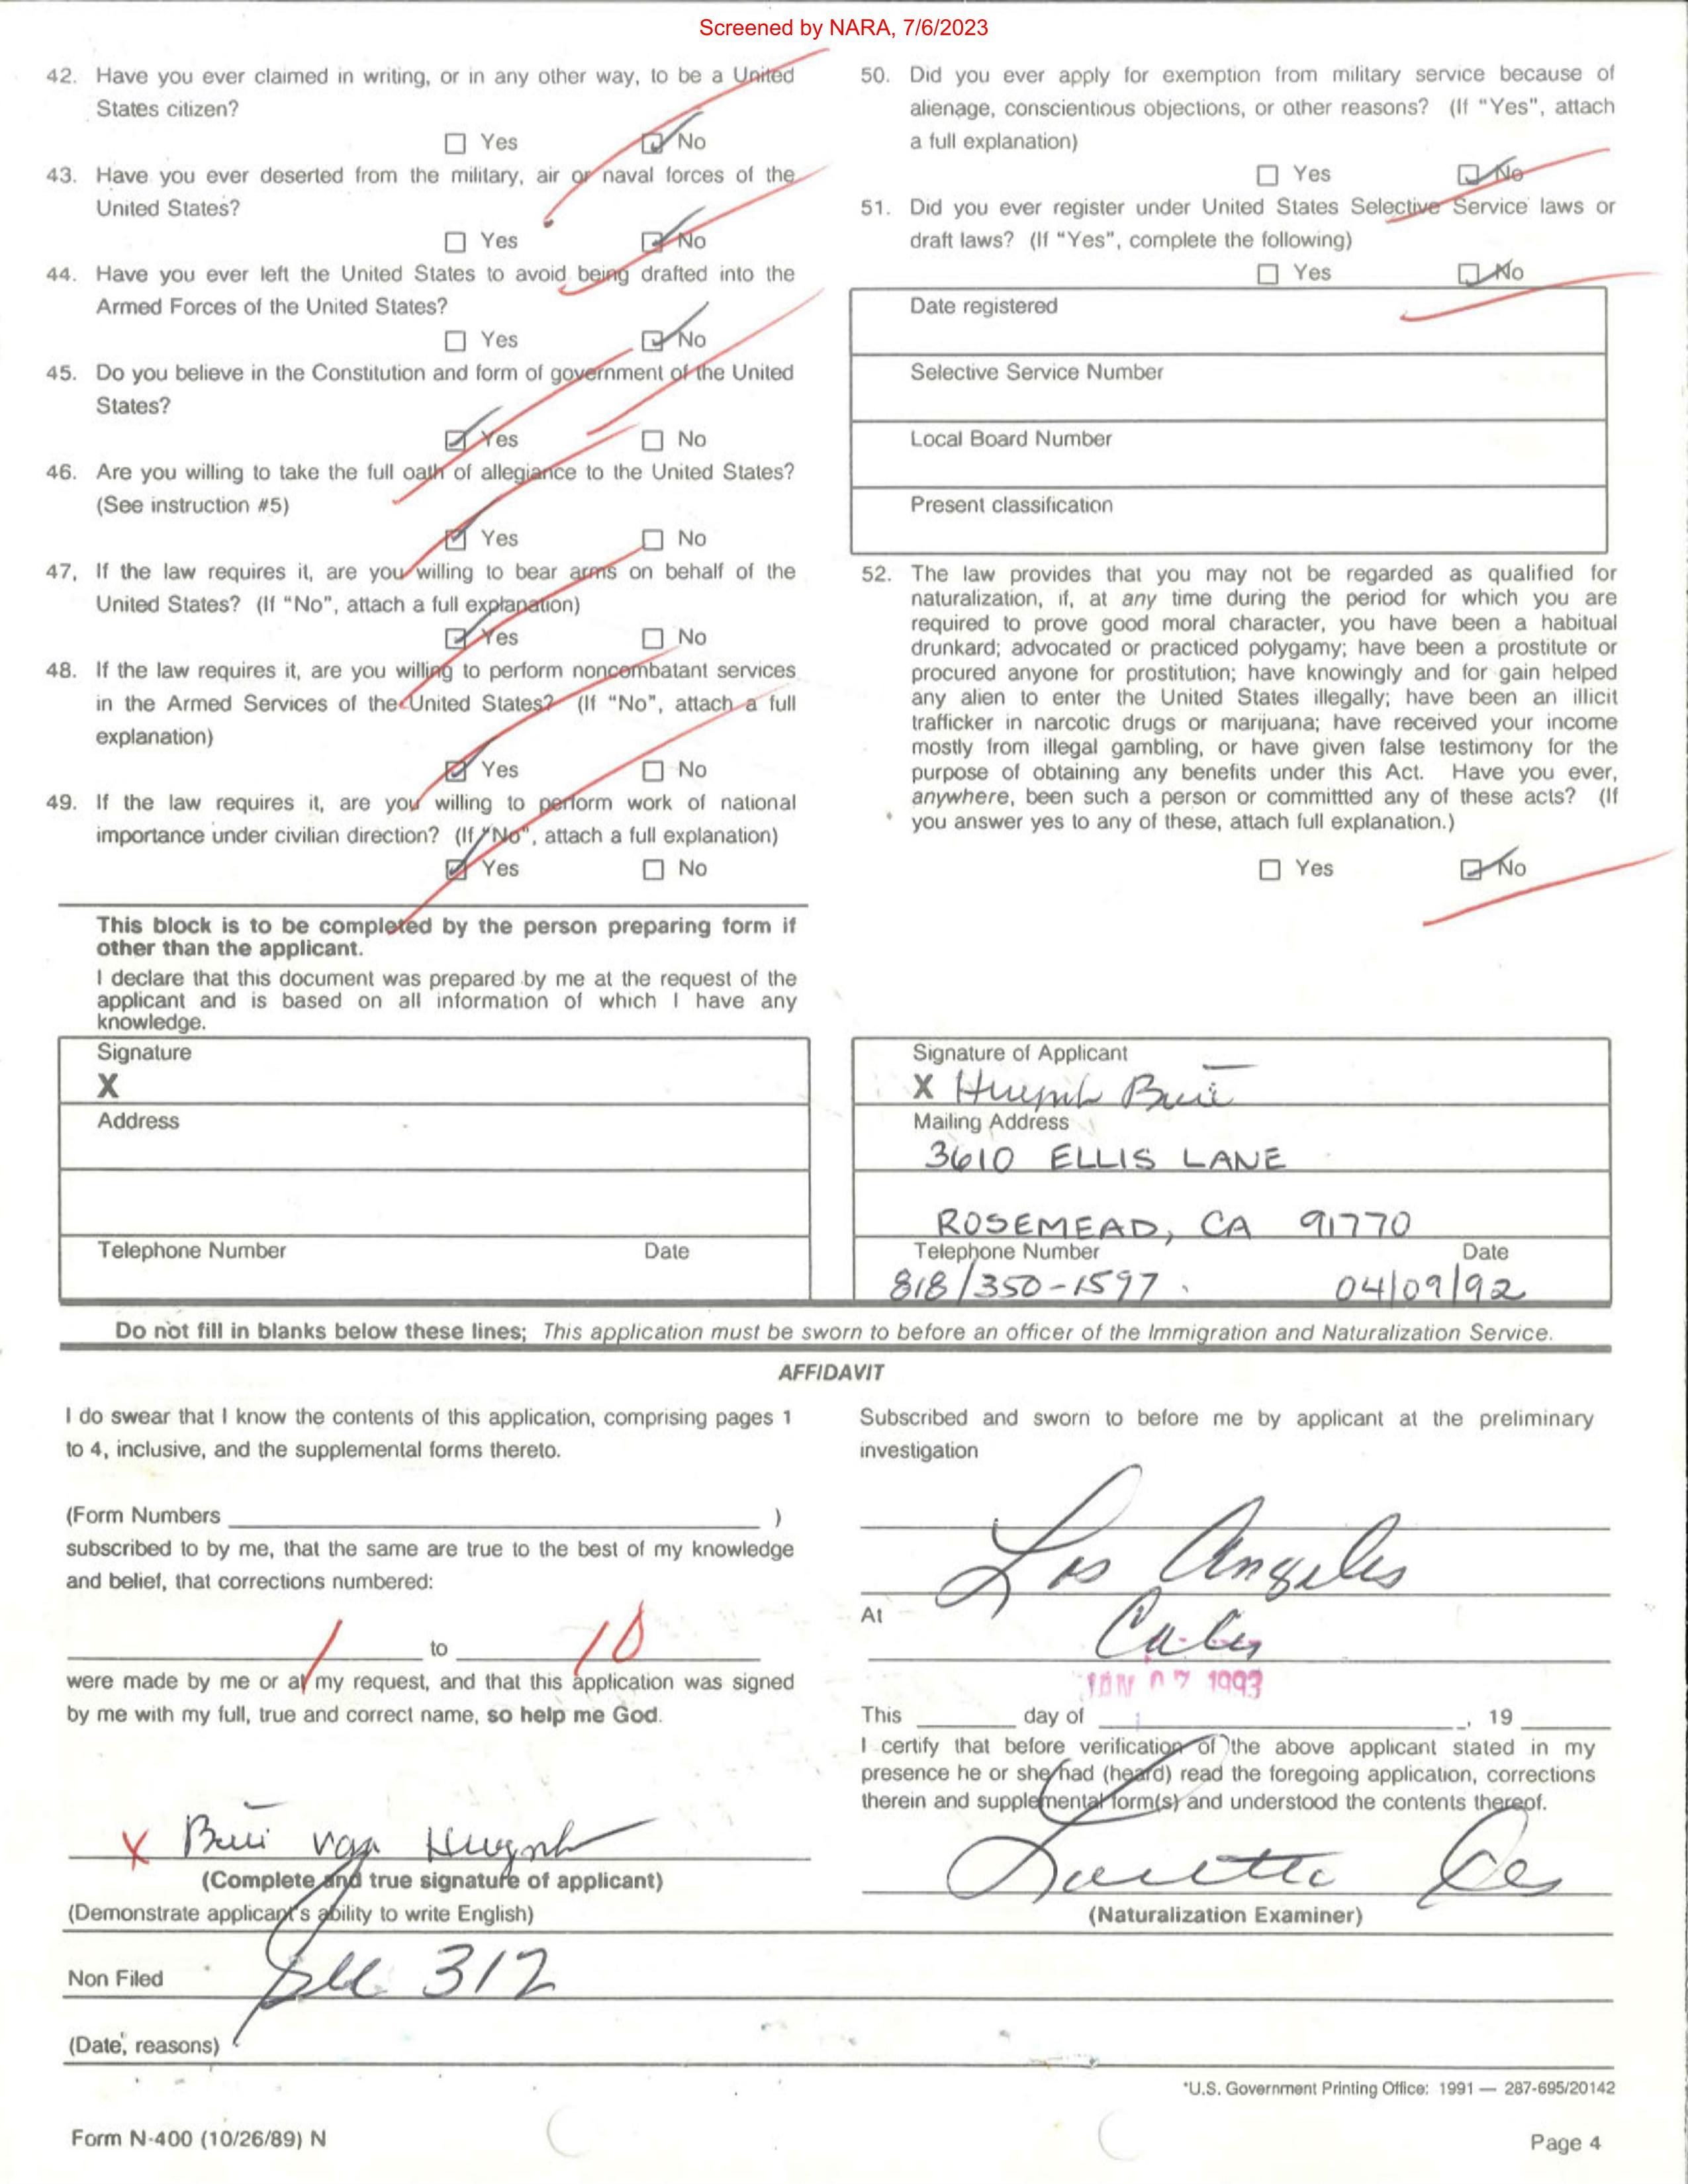 Screened by NARA, 7/6/2023
42. Have you ever claimed in writing, or in any other way, to be a United
States citizen?
☐ Yes ☑ No
43. Have you ever deserted from the military, air or naval forces of the
United States?
☐ Yes ☑ No
44. Have you ever left the United States to avoid being drafted into the
Armed Forces of the United States?
☐ Yes ☑ No
45. Do you believe in the Constitution and form of government of the United
States?
☑ Yes ☐ No
46. Are you willing to take the full oath of allegiance to the United States?
(See instruction #5)
☑ Yes ☐ No
47, If the law requires it, are you willing to bear arms on behalf of the
United States? (If "No", attach a full explanation)
☑ Yes ☐ No
48. If the law requires it, are you willing to perform noncombatant services
in the Armed Services of the United States? (If "No", attach a full
explanation)
☑ Yes ☐ No
49. If the law requires it, are you willing to perform work of national
importance under civilian direction? (If "No", attach a full explanation)
☑ Yes ☐ No
This block is to be completed by the person preparing form if
other than the applicant.
I declare that this document was prepared by me at the request of the
applicant and is based on all information of which I have any
knowledge.
Signature
X
Address
Telephone Number Date
50. Did you ever apply for exemption from military service because of
alienage, conscientious objections, or other reasons? (If "Yes", attach
a full explanation)
☐ Yes ☑ No
51. Did you ever register under United States Selective Service laws or
draft laws? (If "Yes", complete the following)
☐ Yes ☑ No
Date registered
Selective Service Number
Local Board Number
Present classification
52. The law provides that you may not be regarded as qualified for
naturalization, if, at any time during the period for which you are
required to prove good moral character, you have been a habitual
drunkard; advocated or practiced polygamy; have been a prostitute or
procured anyone for prostitution; have knowingly and for gain helped
any alien to enter the United States illegally; have been an illicit
trafficker in narcotic drugs or marijuana; have received your income
mostly from illegal gambling, or have given false testimony for the
purpose of obtaining any benefits under this Act. Have you ever,
anywhere, been such a person or committted any of these acts? (If
you answer yes to any of these, attach full explanation.)
☐ Yes ☑ No
Signature of Applicant
X Huynh Bui
Mailing Address
3610 ELLIS LANE
ROSEMEAD, CA 91770
Telephone Number Date
818/350-1597 04/09/92
Do not fill in blanks below these lines; This application must be sworn to before an officer of the Immigration and Naturalization Service.
AFFIDAVIT
I do swear that I know the contents of this application, comprising pages 1
to 4, inclusive, and the supplemental forms thereto.
(Form Numbers )
subscribed to by me, that the same are true to the best of my knowledge
and belief, that corrections numbered:
1 to 10
were made by me or at my request, and that this application was signed
by me with my full, true and correct name, so help me God.
X Bui van Huynh
(Complete and true signature of applicant)
(Demonstrate applicant's ability to write English)
Non Filed
312
(Date, reasons)
Subscribed and sworn to before me by applicant at the preliminary
investigation
Los Angeles
At
JAN 07 1993
This day of , 19
I certify that before verification of the above applicant stated in my
presence he or she had (heard) read the foregoing application, corrections
therein and supplemental form(s) and understood the contents thereof.
(Naturalization Examiner)
*U.S. Government Printing Office: 1991 — 287-695/20142
Form N-400 (10/26/89) N
Page 4